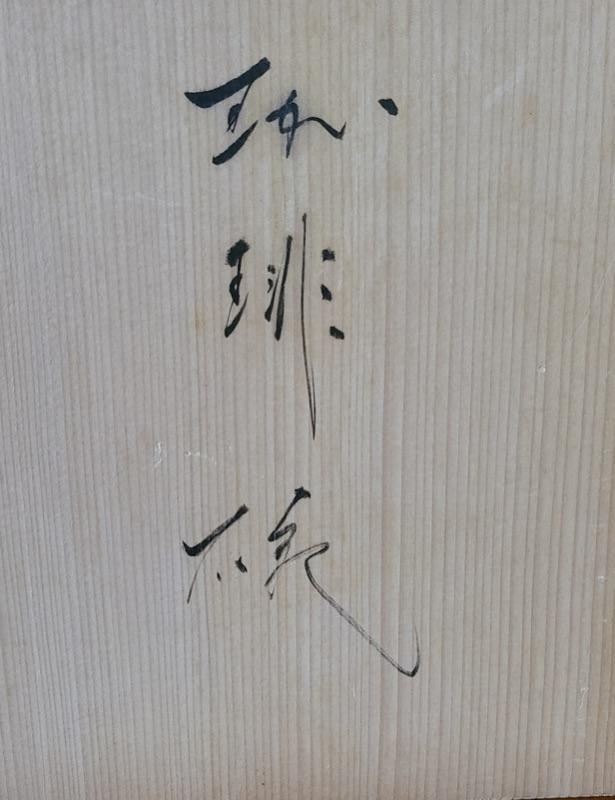 珈琲碗